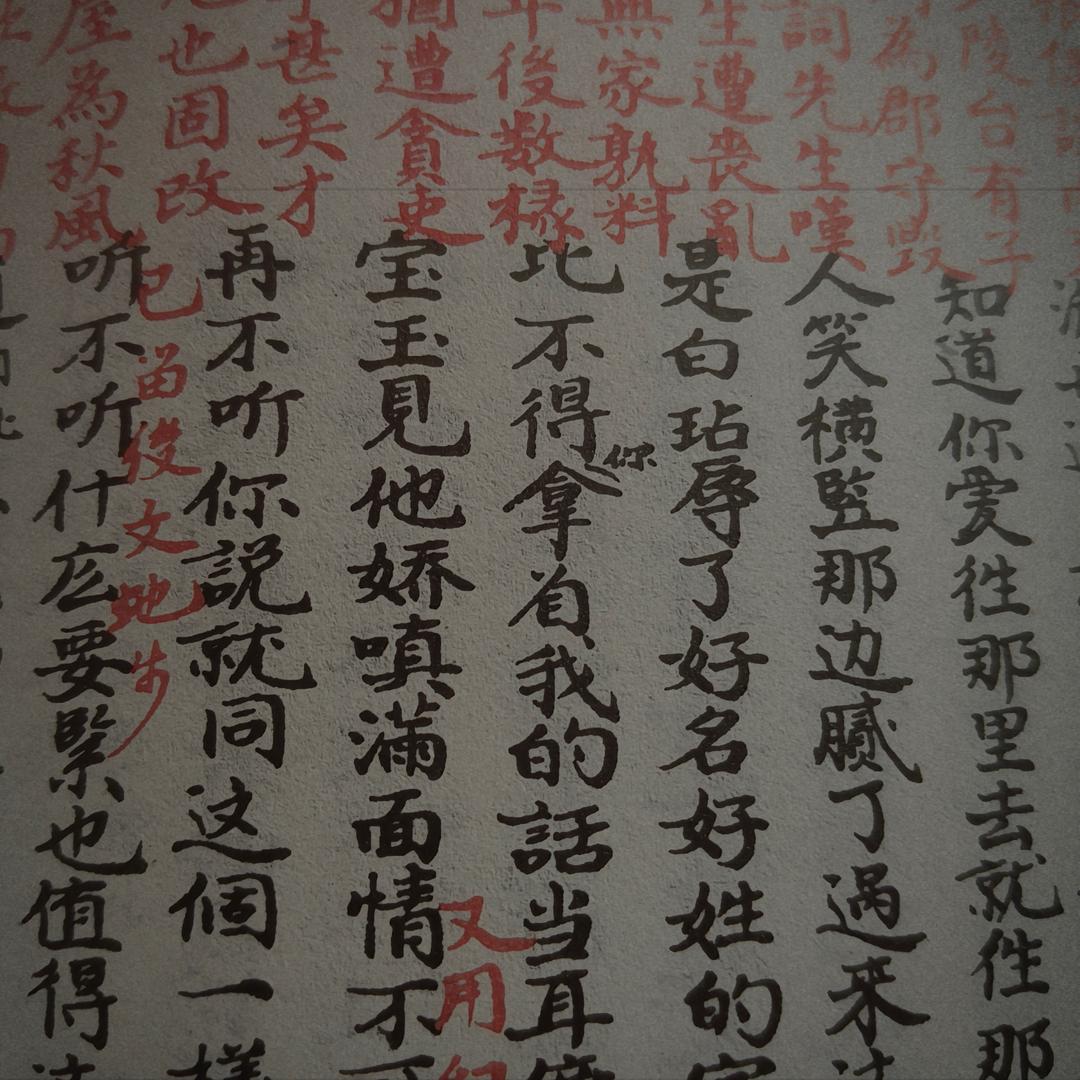 陵台有子
為郡守毀
詞先生嘆
生遭喪亂
無家孰料
年後数椽
猶遭貪吏
甚矣才
也固改
屋為秋風
知道你爱往那里去就往那
人笑横監那边腻了過来
是白玷辱了好名好姓的
比不得你拿着我的話当耳
又用
宝玉見他娇嗔滿面情不可
再不听你説就同这個一様
已留後文地步
听不听什庅要緊也值得